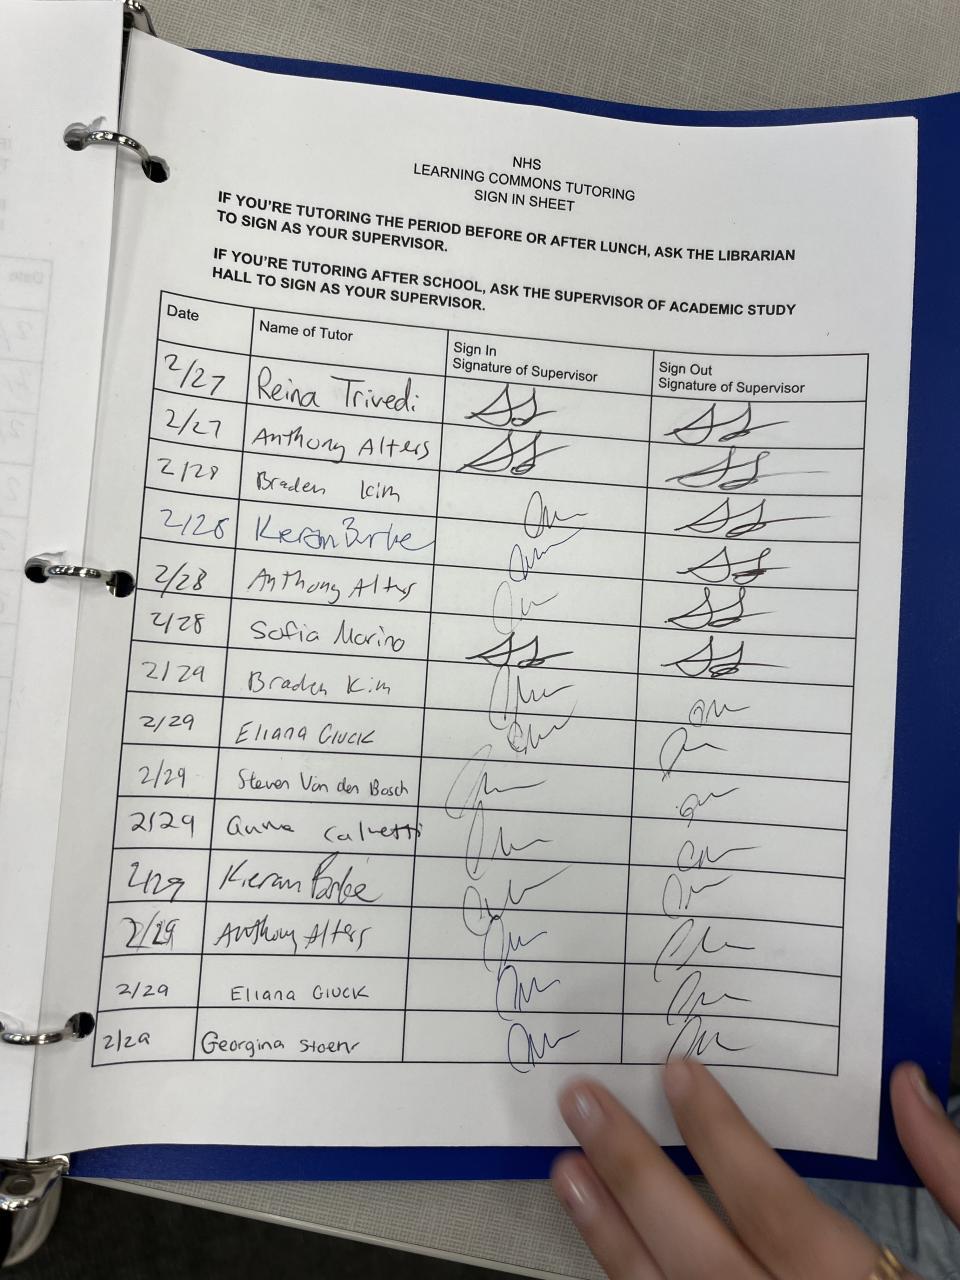 NHS
LEARNING COMMONS TUTORING
SIGN IN SHEET
IF YOU'RE TUTORING THE PERIOD BEFORE OR AFTER LUNCH, ASK THE LIBRARIAN
TO SIGN AS YOUR SUPERVISOR.
IF YOU'RE TUTORING AFTER SCHOOL, ASK THE SUPERVISOR OF ACADEMIC STUDY
HALL TO SIGN AS YOUR SUPERVISOR.
Date Name of Tutor Sign In Signature of Supervisor Sign Out Signature of Supervisor
2/27 Reina Trivedi
2/27 Anthony Alters
2/28 Braden Kim
2/28 Kieran Burke
2/28 Anthony Alters
2/28 Sofia Marino
2/29 Braden Kim
2/29 Eliana Gluck
2/29 Steven Van den Bosch
2/29 anna calvetti
2/29 Kieran Burke
2/29 Anthony Alters
2/29 Eliana Gluck
2/29 Georgina Stoehr